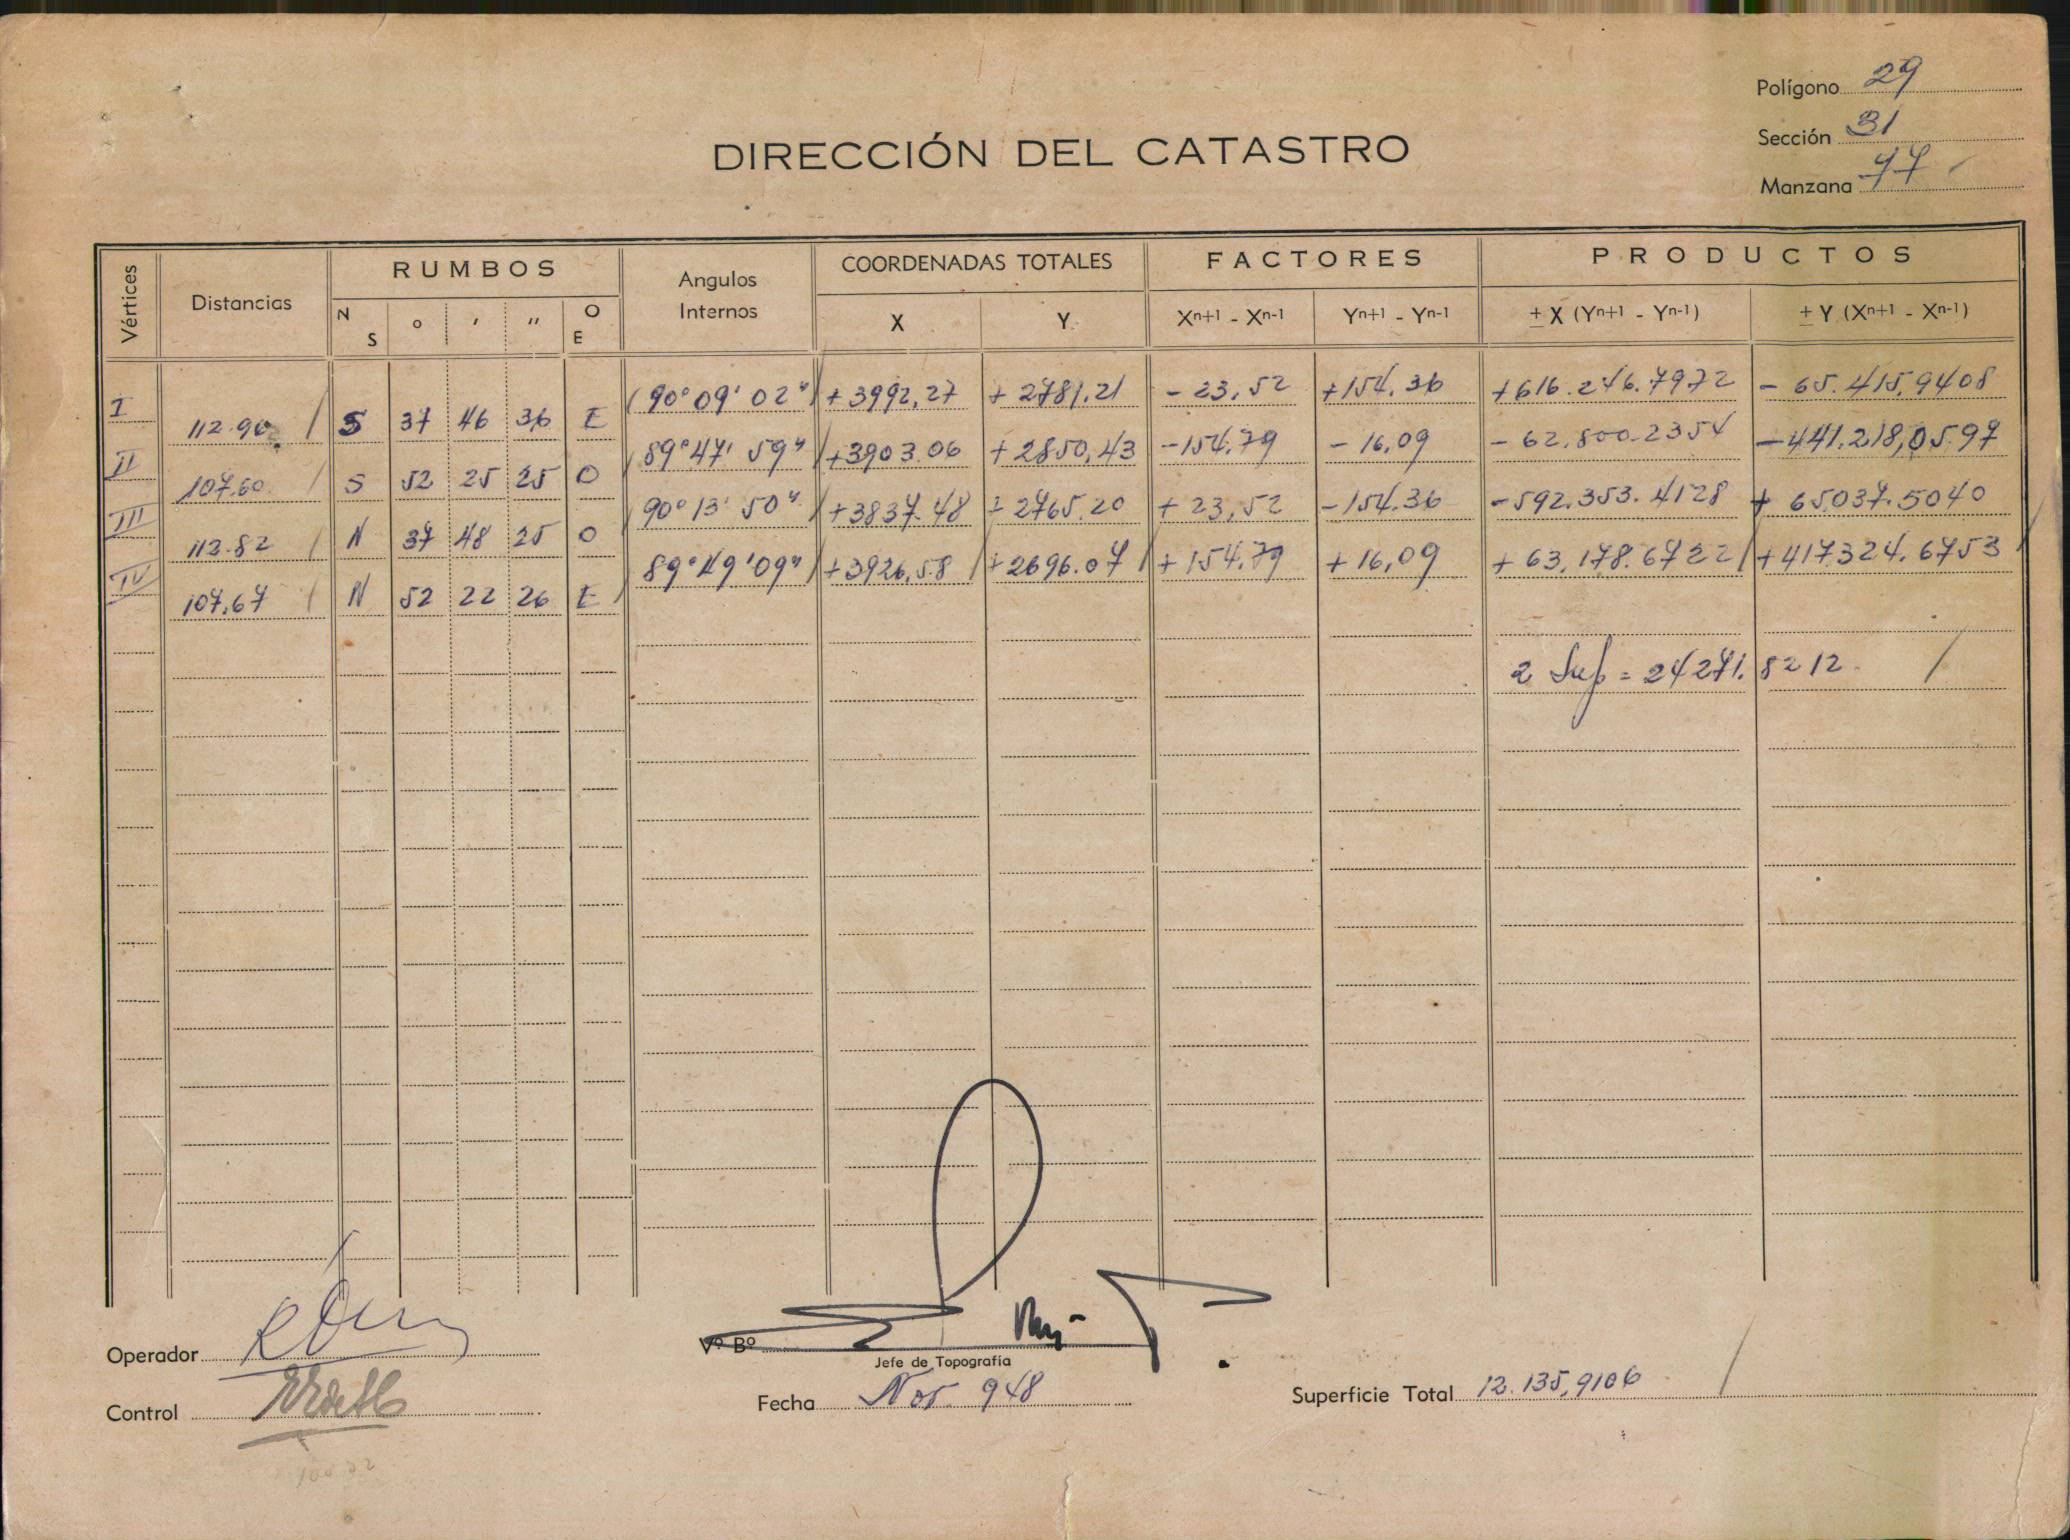 Polígono 29
Sección 31
Manzana 77
DIRECCIÓN DEL CATASTRO
Vértices Distancias RUMBOS Angulos Internos COORDENADAS TOTALES FACTORES PRODUCTOS
N S ° ' " O E X Y Xn+1 - Xn-1 Yn+1 - Yn-1 ± X (Yn+1 - Yn-1) ± Y (Xn+1 - Xn-1)
I 90° 09' 02" +3992,27 + 2781,21 - 23,52 +154,36 +616.246.7972 - 65.415,9408
112.90 S 37 46 36 E
II 89° 47' 59" +3903.06 +2850,43 -154,79 - 16,09 - 62.800.2354 -441.218,0597
107.60 S 52 25 25 O
III 90° 13' 50" +3837.48 + 2765.20 + 23,52 -154.36 -592.353.4128 + 65037.5040
112.82 N 37 48 25 O
IV 89° 49' 09" +3926,58 +2696.07 + 154,79 + 16,09 + 63,178.6722 +417324.6753
107,67 N 52 22 26 E
2 Sup = 24271.8212
Operador
Vº Bº
Jefe de Topografía
Control
Fecha Nov. 948
Superficie Total 12.135,9106